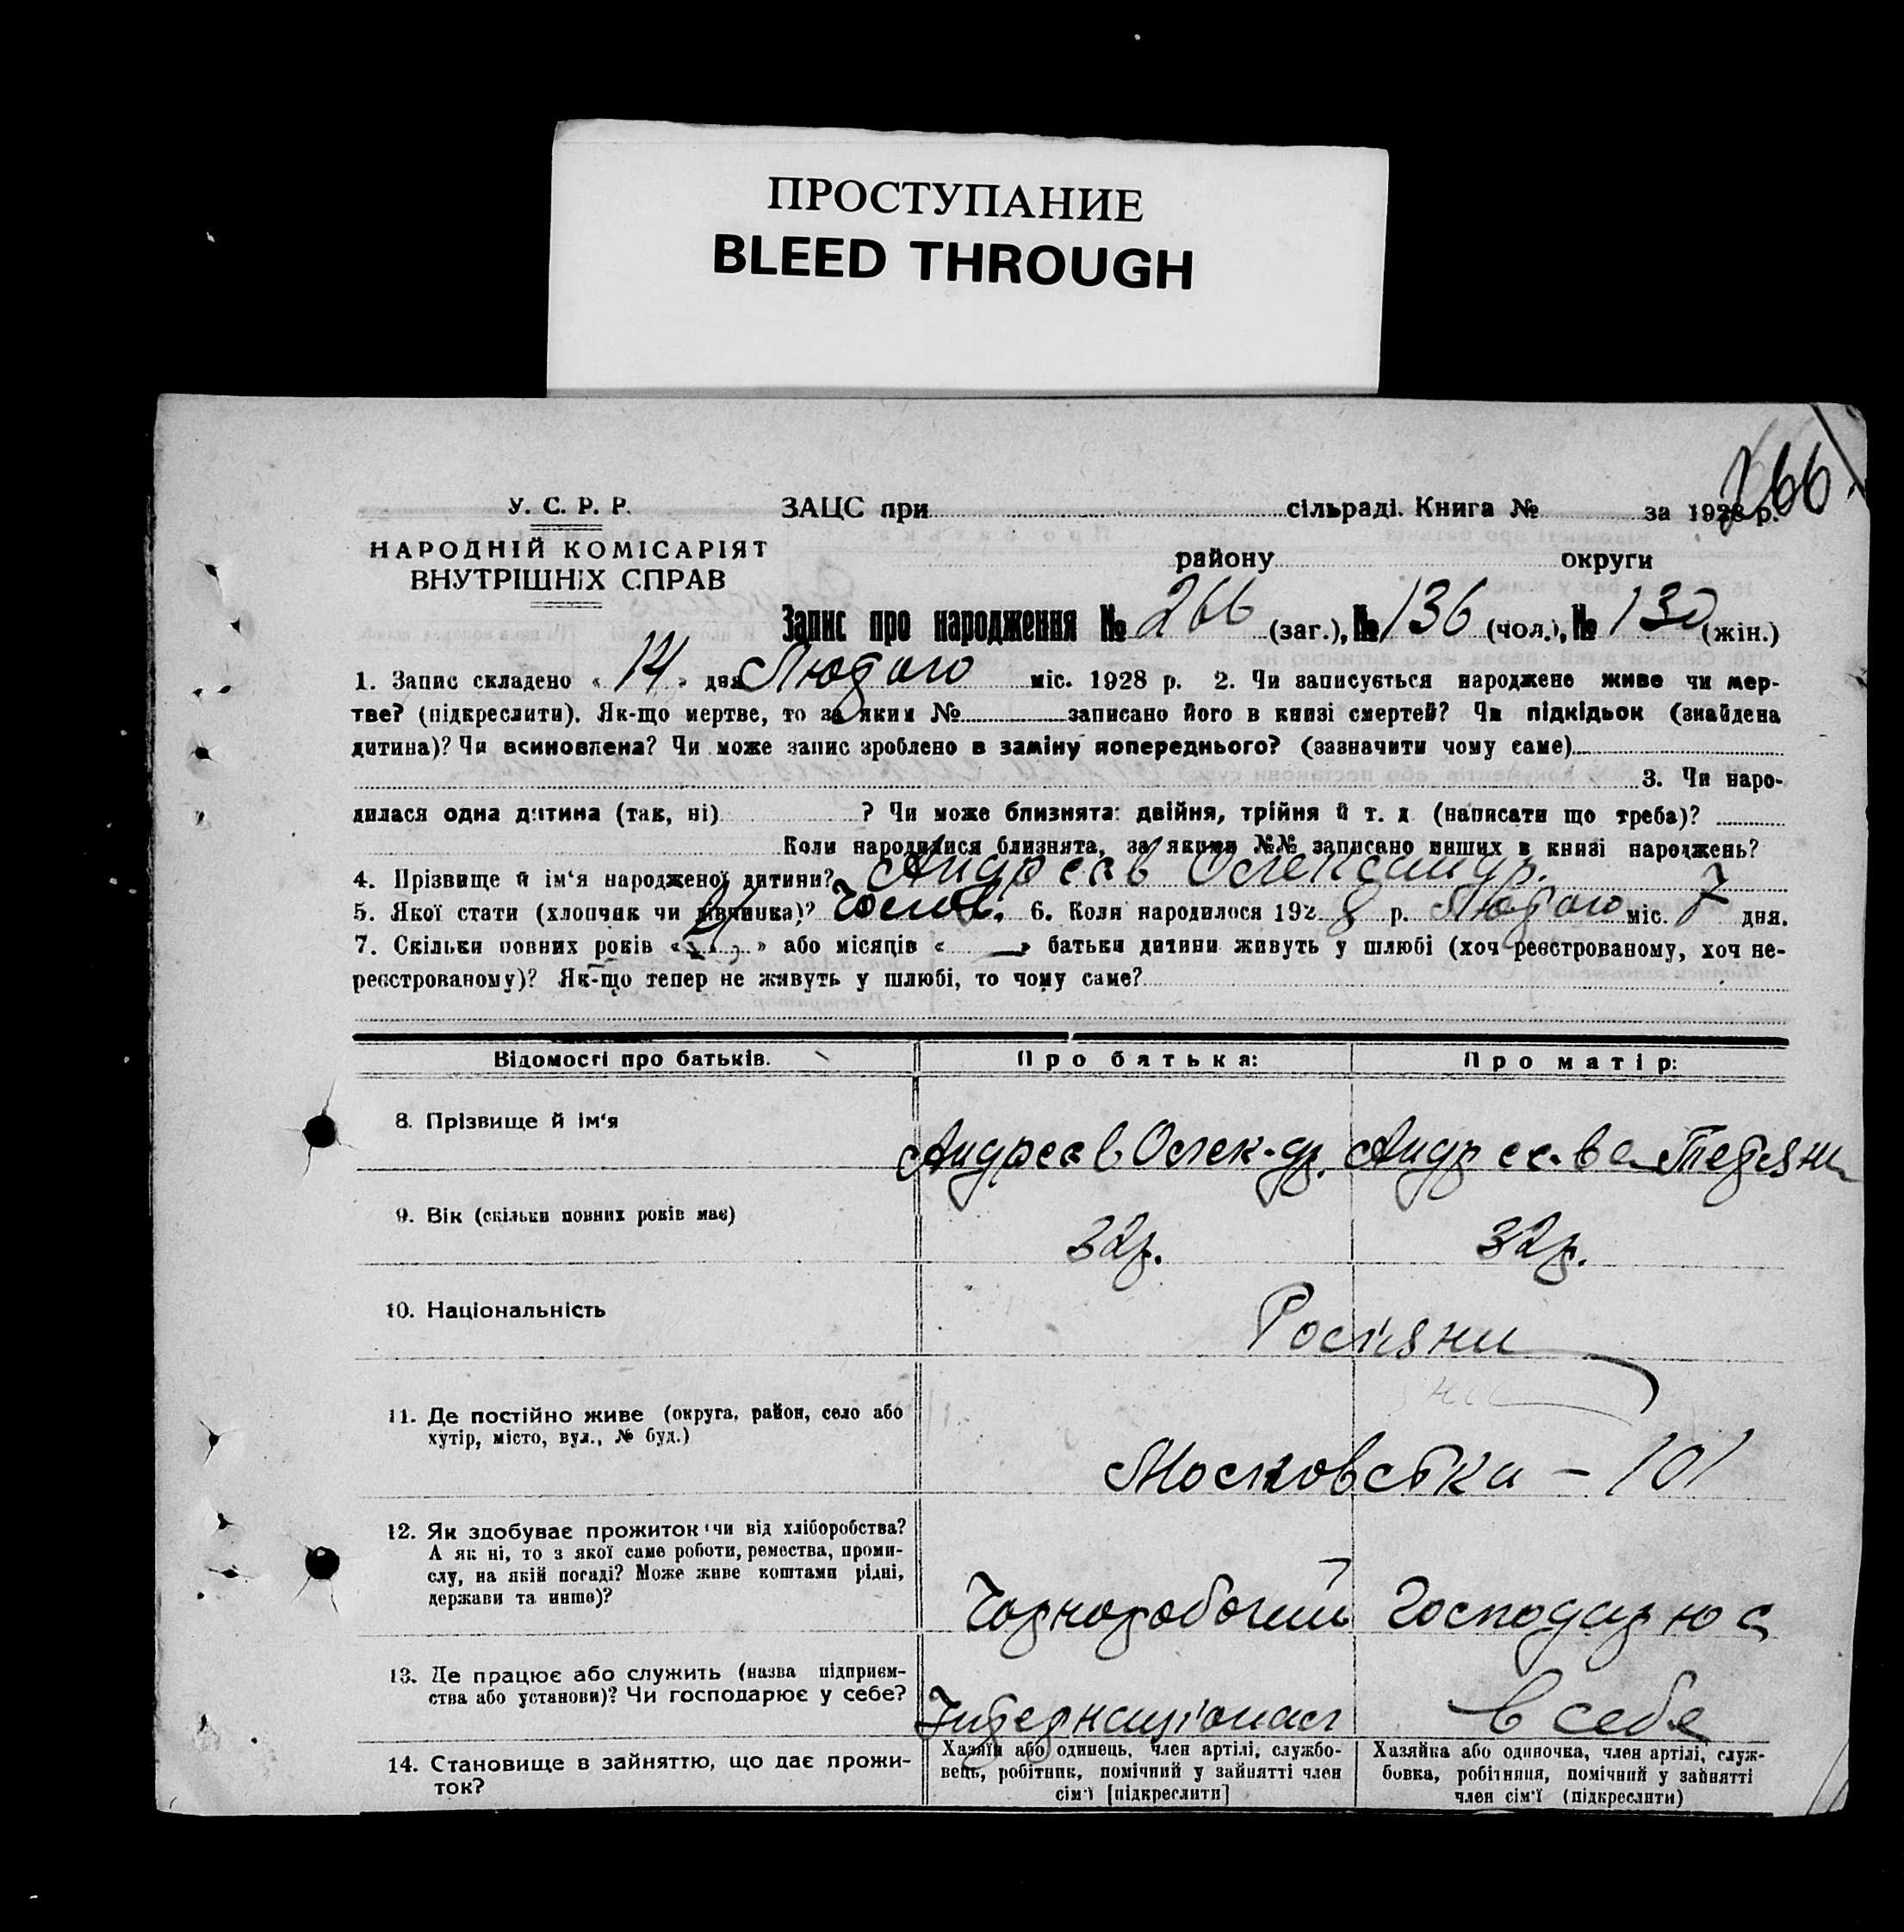 ПРОСТУПАНИЕ
BLEED THROUGH
266
У. С. Р. Р.
НАРОДНІЙ КОМІСАРІЯТ
ВНУТРІШНІХ СПРАВ
ЗАЦС при сільраді. Книга № за 1928 р.
району округи
Запис про народження № 266 (заг.), № 136 (чол.), № 130 (жін.)
1. Запис складено « 14 » дня Лютого міс. 1928 р. 2. Чи записується народжене живе чи мер-
тве? (підкреслити). Як-що мертве, то за яким № записано його в книзі смертей? Чи підкідьок (знайдена
дитина)? Чи всиновлена? Чи може запис зроблено в заміну попереднього? (зазначити чому саме)
3. Чи наро-
дилася одна дитина (так, ні) ? Чи може близнята: двійня, трійня й т. д (написати що треба)?
Коли народилися близнята, за якими №№ записано инших в книзі народжень?
4. Прізвище й ім‘я народженої дитини? Андреєв Олександр.
5. Якої стати (хлопчик чи дівчинка)? Чолов. 6. Коли народилося 1928 р. Лютого міс. 7 дня.
7. Скільки повних років « » або місяців « — » батьки дитини живуть у шлюбі (хоч реєстрованому, хоч не-
реєстрованому)? Як-що тепер не живуть у шлюбі, то чому саме?
Відомості про батьків. Про батька: Про матір:
8. Прізвище й ім‘я Андреєв Олек-др. Андреєва Тетяна
9. Вік (скільки повних років має) 32р. 32р.
10. Національність Росіяни
11. Де постійно живе (округа, район, село або
хутір, місто, вул., № буд.)
Московська – 101
12. Як здобуває прожиток чи від хліборобства?
А як ні, то з якої саме роботи, ремества, проми-
слу, на якій посаді? Може живе коштами рідні,
держави та инше)?
Чорноробочий Господарює
13. Де працює або служить (назва підприєм-
ства або установи)? Чи господарює у себе?
Інтернаціонал в себе
14. Становище в зайняттю, що дає прожи-
ток?
Хазяїн або одинець, член артілі, службо-
вець, робітник, помічний у зайнятті член
сім‘ї [підкреслити]
Хазяйка або одиночка, член артілі, служ-
бовка, робітниця, помічний у зайнятті
член сім‘ї (підкреслити)